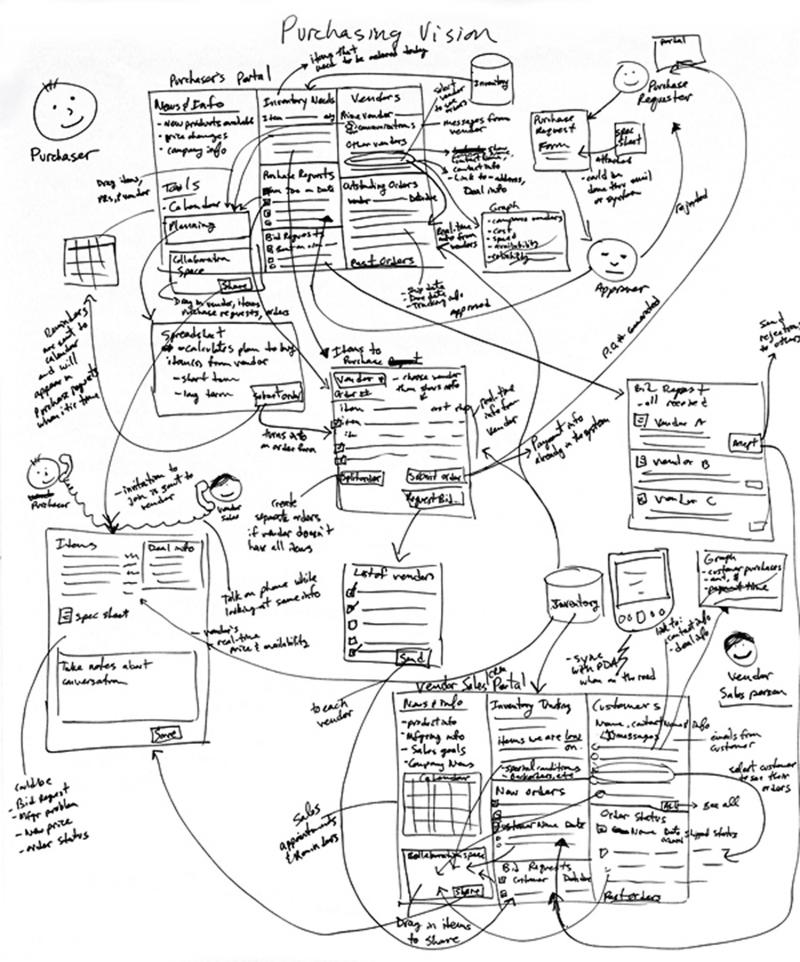 Purchasing Vision
items that
need to be ordered today
Inventory
Portal
Purchase
Requester
Purchaser
Purchaser's Portal
News & Info
- New products available
- price changes
- company info
Tools
- Calendar
- Planning
Collaboration
Space
Share
Inventory Needs
Item
Purchase Requests
Item Date
Bid Requests
Vendors
Prime vendor
communications
Other vendors
Outstanding Orders
Vendor Date due
Past Orders
select
vendor
to see
orders
messages from
vendor
contact info
- Link to - address,
Deal info
Purchase
Request
Form
spec
sheet
attached
could be
done thru email
or system
rejected
Approver
Approved
Graph
- compares vendors
- cost
- speed
- availability
- reliability
Real-time
info from
vendors
- Ship date
- Due date
- Tracking info
Drag items,
PRs, & vendor
Drag in vendor, items
purchase requests, orders
Reminders
are sent to
calendar
and will
appear in
Purchase requests
when it is time
Spreadsheet
- calculates plan to buy
itemizes from vendor
- short term
- long term
Submit order
turns into
an order form
Items to
Purchase
Vendor
- choose vendor
then shows info
Order #
item
item
Split order
Submit order
Request Bid
real-time
info from
vendor
Payment info
already in the system
P.O.# generated
Send
rejection
to others
Bid Request
- all received
Vendor A
Vendor B
Vendor C
Accept
Purchaser
Vendor
Sales
- invitation to
join is sent to
vendor
create
separate orders
if vendor doesn't
have all items
Items
Deal info
spec sheet
Take notes about
conversation
Save
Talk on phone while
looking at same info
- vendor's
real-time
price & availability
could be
- Bid Request
- Mfgr problem
- New price
- order status
List of vendors
Send
to each
vendor
Inventory
- sync
with PDA
when on the road
link to:
- contact info
- deal info
Graph
- customer purchases
- amt, $
- payment time
Vendor
Sales person
Vendor Sales/CRM Portal
News & Info
- product info
- Mfgring info
- Sales goals
- Company News
Calendar
Collaboration space
Share
Sales
appointments
& reminders
Drag in items
to share
Inventory Tracking
items we are low
on.
- special conditions
- backorders, etc.
New orders
Customer Name Date
Bid Requests
Customer Date due
Customers
Name, contact name & info
messages
emails from
customer
select customer
to see their
orders
All
See all
Order Status
Name Date Shipped Status
Past orders